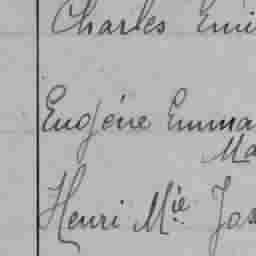 Charles Emi
Eugéne Emma
Ma
Henri Mie Jos